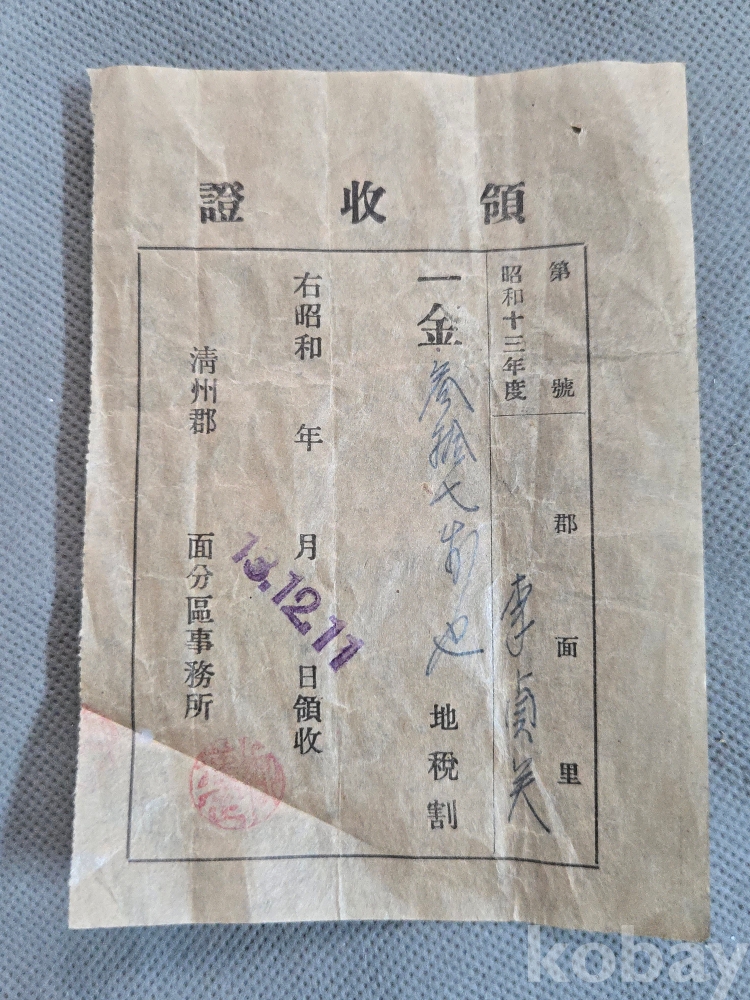 領收證
第 號
郡 面 里
昭和十三年度
李貞
一金 參拾七 也 地稅割
右昭和 年 月 日領收
13.12.11
淸州郡 面分區事務所
kobay